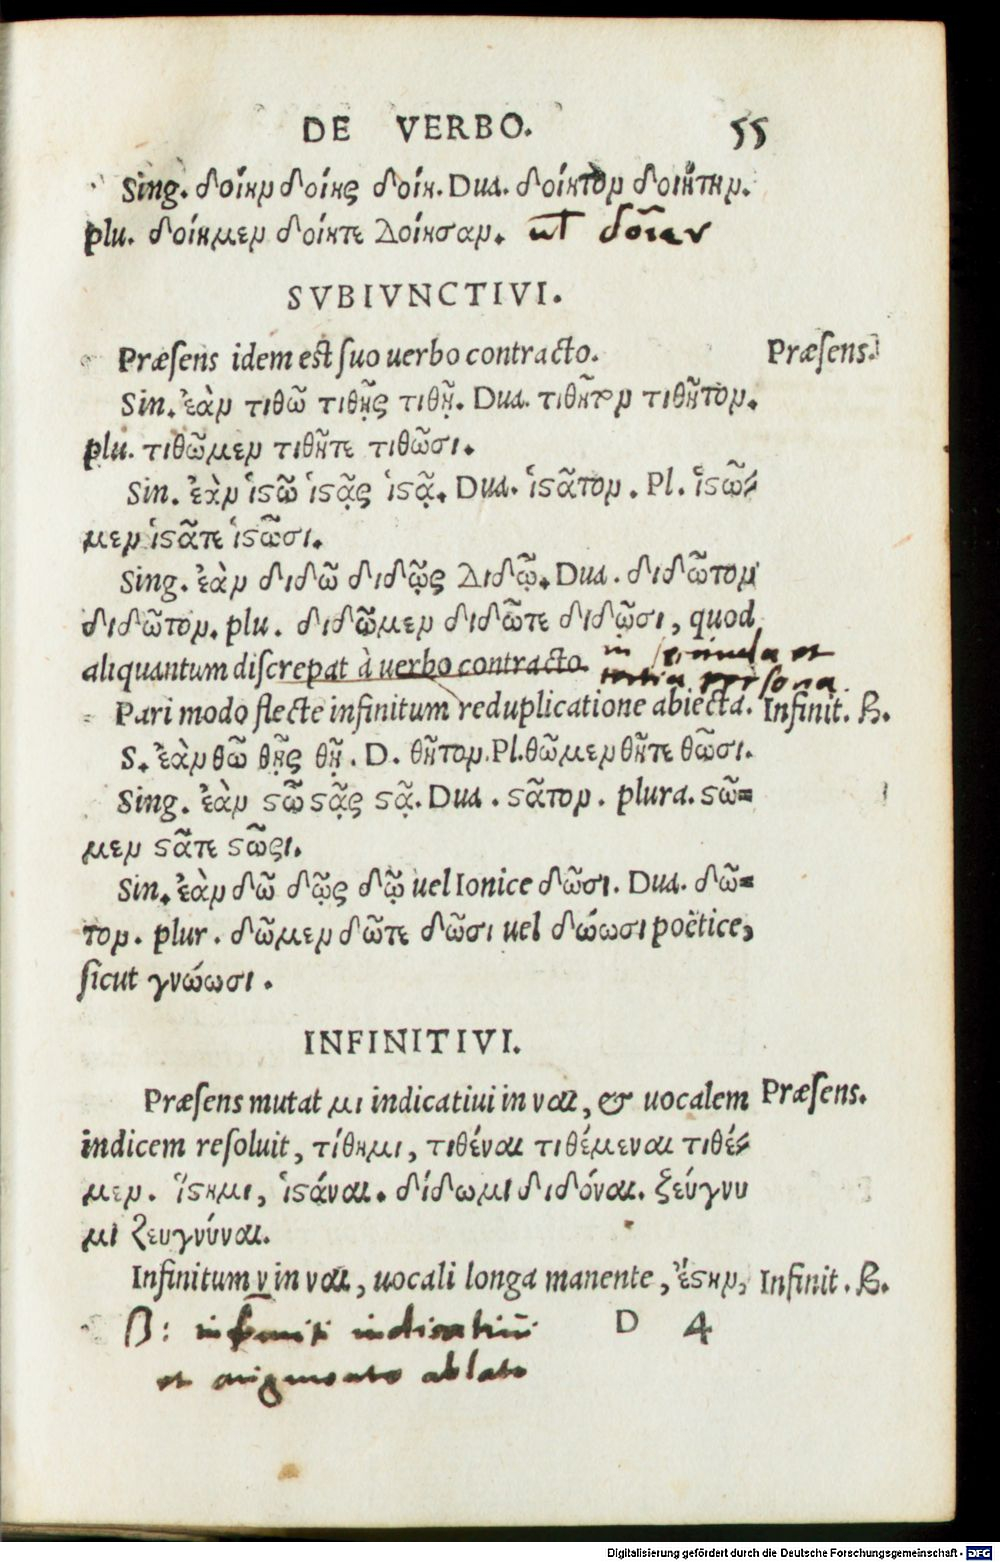 DE VERBO. 55
Sing. δοίην δοίης δοίη. Dua. δοίητον δοιήτην.
plu. δοίημεν δοίητε δοίησαν. ut δοῖεν
SVBIVNCTIVI.
Præſens idem eſt ſuo uerbo contracto. Præſens.
Sin. ἐὰν τιθῶ τιθῇς τιθῇ. Dua. τιθῆτον τιθῆτον.
plu. τιθῶμεν τιθῆτε τιθῶσι.
Sin. ἐὰν ἱϛῶ ἱϛᾷς ἱϛᾷ. Dua. ἱϛᾶτον. Pl. ἱϛῶ-
μεν ἱϛᾶτε ἱϛῶσι.
Sing. ἐὰν διδῶ διδῷς διδῷ. Dua. διδῶτον
διδῶτον. plu. διδῶμεν διδῶτε διδῷσι, quod
aliquantum diſcrepat à uerbo contracto. in secunda et
tertia persona
Pari modo flecte infinitum reduplicatione abiecta. Infinit. B.
S. ἐὰν θῶ θῇς θῇ. D. θῆτον. Pl. θῶμεν θῆτε θῶσι.
Sing. ἐὰν ϛῶ ϛᾷς ϛᾷ. Dua. ϛᾶτον. plura. ϛῶ=
μεν ϛᾶτε ϛῶσι.
Sin. ἐὰν δῶ δῷς δῷ uel Ionice δῶσι. Dua. δῶ=
τον. plur. δῶμεν δῶτε δῶσι uel δώωσι poëtice,
ſicut γνώωσι.
INFINITIVI.
Præſens mutat μι indicatiui in ναι, & uocalem Præſens.
indicem reſoluit, τίθημι, τιθέναι τιθέμεναι τιθέ-
μεν. ἵϛημι, ἱϛάναι. δίδωμι διδόναι. ζεύγνυ
μι ζευγνύναι.
Infinitum ν in ναι, uocali longa manente, ἔϛην, Infinit. B.
B: infiniti indicatiui D 4
et augmento ablato